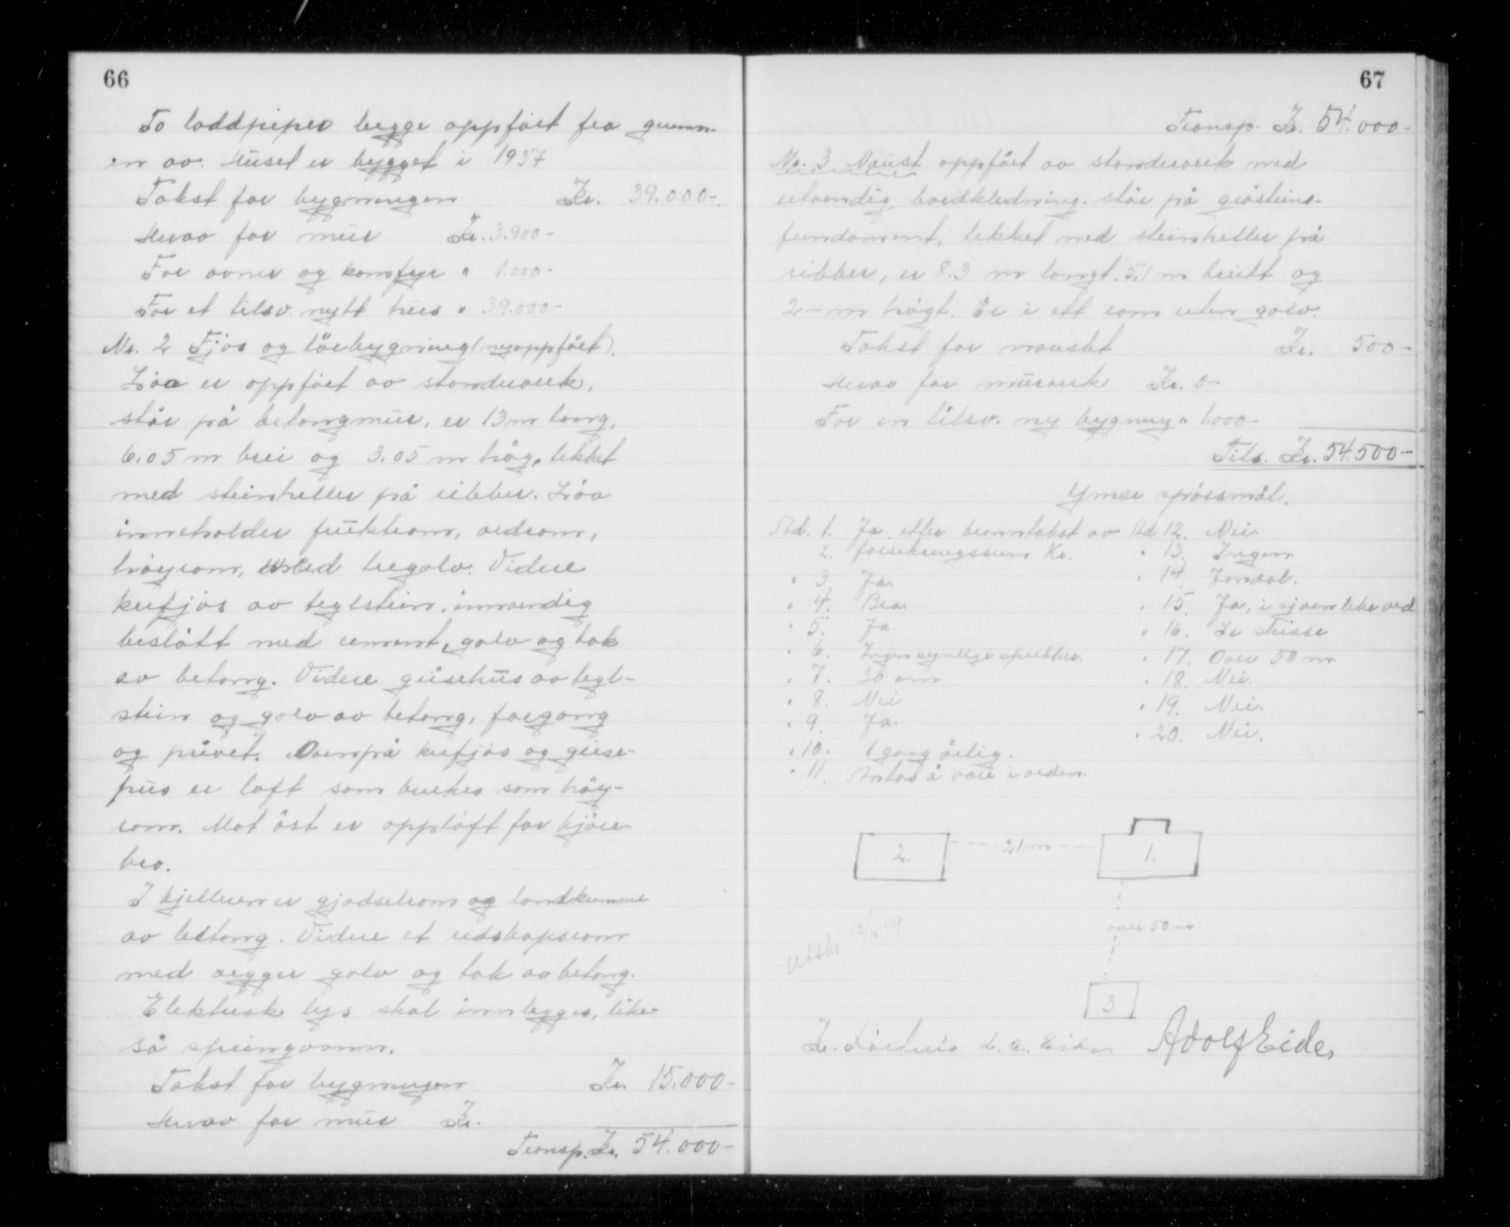 66
To loddpiper begge oppført fra grunn-
en av. Huset er bygget i 1937
Takst for bygningen Kr. 39.000-.
Herav for mur Kr. 3.900-
For ovner og komfyr " 1.000-
For et tilsv. nytt hus " 39.000-
No. 2 Fjos og løebygning (nyoppført).
Løa er oppført av standerverk,
står på betongmur, er 13 m lang,
6.05 m brei og 3.05 m høg, tekket
med steinheller på ribber. Løa
inneholder fruktrom, vedrom,
høyrom, med tregolv. Videre
kufjos av teglstein, innvendig
beslått med cement, golv og tak
av betong. Videre grisehus av tegl-
stein og golv av betong, forgang
og privet. Ovenpå kufjos og grise-
hus er loft som brukes som høy-
rom. Mot øst er oppløft for kjøre-
bro.
I kjelleren er gjødselrom og landkumme
av betong. Videre et redskapsrom
med vegger golv og tak av betong.
Elektrisk lys skal innlegges, like-
så springvann.
Takst for bygningen Kr. 15.000-
Herav for mur Kr.
Transp. Kr. 54.000-
67
Transp. Kr. 54.000-
No. 3 Naust oppført av standerverk med
utvendig bordkledning. står på gråsteins-
fundament, tekket med steinheller på
ribber, er 8.3 m langt, 5.1 m breitt og
2- m høgt. Er i ett rom uten golv.
Takst for naustet Kr. 500-
Herav for murverk Kr. 0-
For en tilsv. ny bygning " 1.000-
Tils. Kr. 54.500-
Ymse spørsmål.
Ad. 1. Ja, etter branntakst av Ad 12. Nei.
2. forsikringssum Kr. " 13. Ingen
" 3. Ja. " 14. Jondal.
" 4. Bra. " 15. Ja, i sjøen like ved
" 5. Ja. " 16. Le
" 6. Ingen synlige sprekker. " 17. Over 50 m
" 7. 30 cm " 18. Nei.
" 8. Nei " 19. Nei.
" 9. Ja. " 20. Nei.
" 10. 1 gang årlig.
" 11. Antas å være i orden.
2. 21 m 1.
over 50 m
Utskr.
3
Adolf Eide,